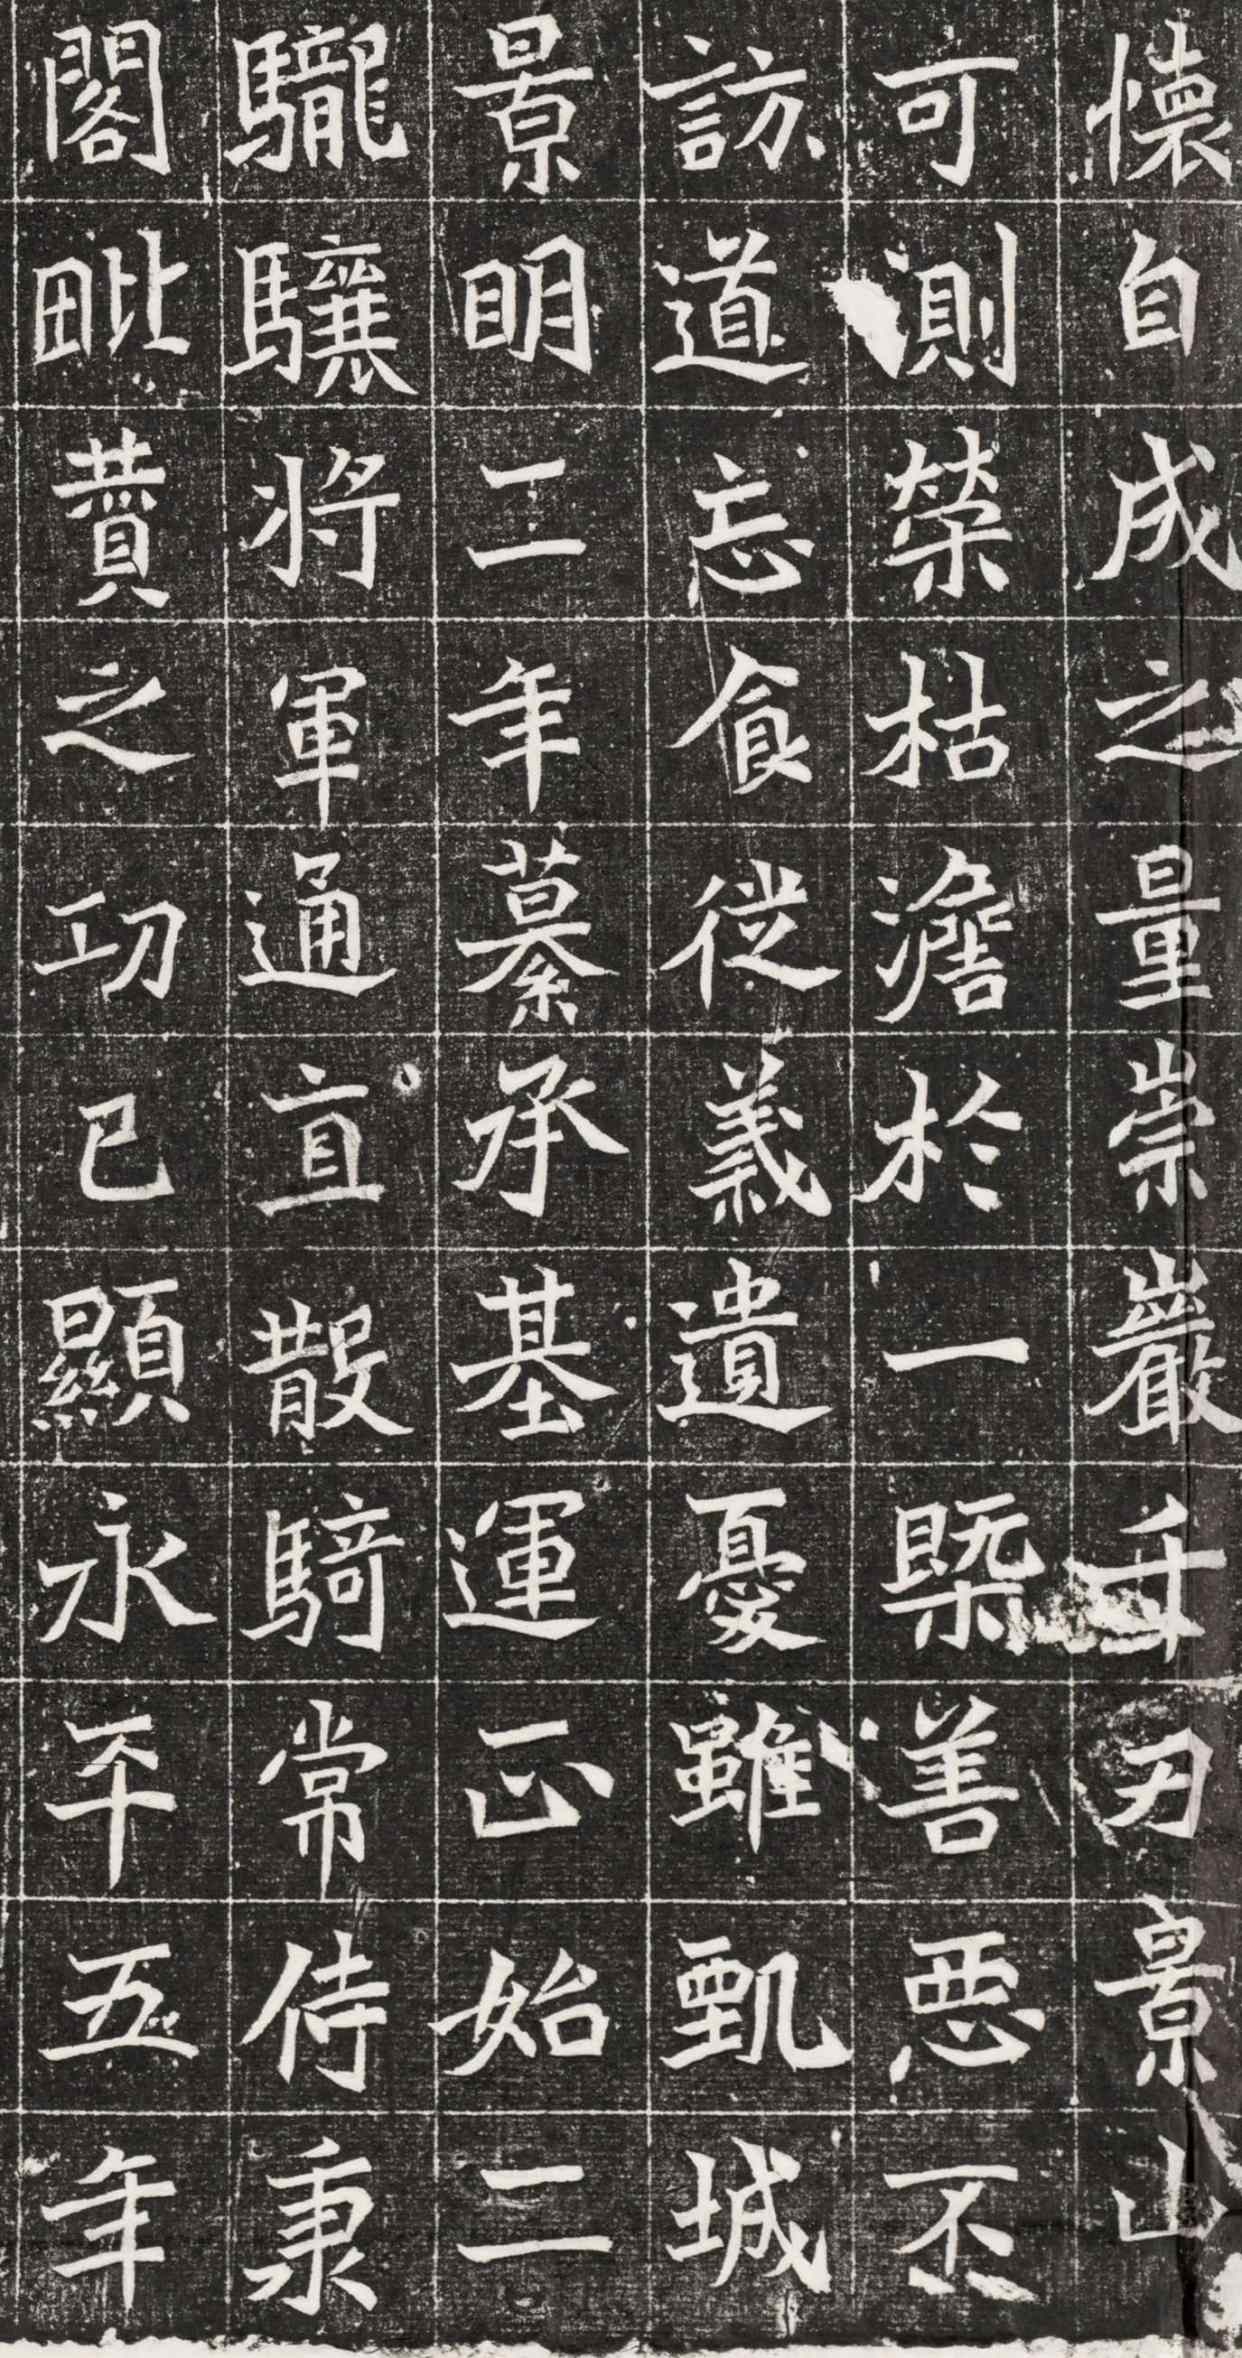 懷自成之量崇巖千刃景山
可測榮枯澹於一槩善惡不
訪道忘食從義遺憂雖甄城
景明二年纂承基運正始二
䮾驤將軍通直散騎常侍秉
閣毗賛之功已顯永平五年